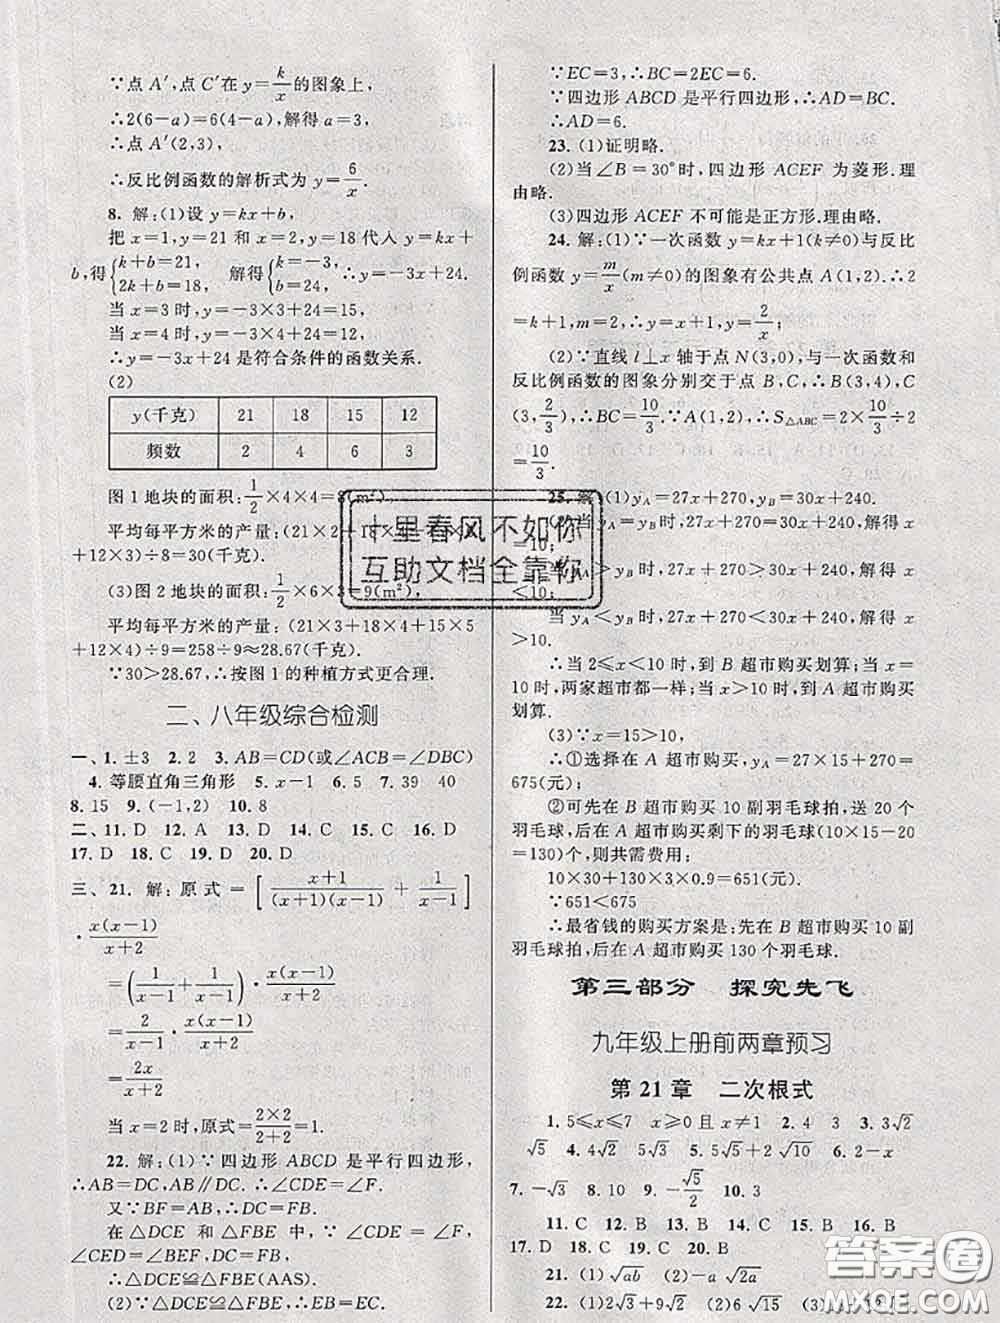 ∵点 A′,点 C′在 y=k/x 的图象上,
∴2(6-a)=6(4-a),解得 a=3,
∴点 A′(2,3),
∴反比例函数的解析式为 y=6/x.
8. 解:(1)设 y=kx+b,
把 x=1,y=21 和 x=2,y=18 代入 y=kx+
b,得{k+b=21, 2k+b=18, 解得{k=-3, b=24. ∴y=-3x+24.
当 x=3 时,y=-3×3+24=15,
当 x=4 时,y=-3×4+24=12,
∴y=-3x+24 是符合条件的函数关系.
(2)
y(千克) 21 18 15 12
频数 2 4 6 3
图 1 地块的面积:1/2×4×4=8(m²),
平均每平方米的产量:(21×2+18×4+15×6
+12×3)÷8=30(千克).
(3)图 2 地块的面积:1/2×6×3=9(m²),
平均每平方米的产量:(21×3+18×4+15×5
+12×4)÷9=258÷9≈28.67(千克).
∵30>28.67,∴按图 1 的种植方式更合理.
二、八年级综合检测
一、1. ±3 2. 2 3. AB=CD(或∠ACB=∠DBC)
4. 等腰直角三角形 5. x-1 6. 5 7. 39 40
8. 15 9. (-1,2) 10. 8
二、11. D 12. A 13. D 14. C 15. C 16. D
17. D 18. C 19. D 20. D
三、21. 解:原式=[(x+1)/((x+1)(x-1)) + 1/(x-1)]
·x(x-1)/(x+2)
=(1/(x-1)+1/(x-1))·x(x-1)/(x+2)
=2/(x-1)·x(x-1)/(x+2)
=2x/(x+2)
当 x=2 时,原式=(2×2)/(2+2)=1.
22. 解:(1)∵四边形 ABCD 是平行四边形,
∴AB=DC,AB∥DC. ∴∠CDE=∠F.
又∵BF=AB,∴DC=FB.
在△DCE 和△FBE 中,∵∠CDE=∠F,
∠CED=∠BEF,DC=FB,
∴△DCE≌△FBE(AAS).
(2)∵△DCE≌△FBE,∴EB=EC.
∵EC=3,∴BC=2EC=6.
∵四边形 ABCD 是平行四边形,∴AD=BC.
∴AD=6.
23. (1)证明略.
(2)当∠B=30°时,四边形 ACEF 为菱形.理
由略.
(3)四边形 ACEF 不可能是正方形.理由略.
24. 解:(1)∵一次函数 y=kx+1(k≠0)与反比
例函数 y=m/x(m≠0)的图象有公共点 A(1,2).∴2
=k+1,m=2,∴y=x+1,y=2/x;
(2)∵直线 l⊥x 轴于点 N(3,0),与一次函数和
反比例函数的图象分别交于点 B,C,∴B(3,4),C
(3,2/3),∴BC=10/3.∵A(1,2),∴S△ABC=2×10/3÷2
=10/3.
25. 解:(1)yA=27x+270,yB=30x+240.
(2)当 yA=yB 时,27x+270=30x+240,解得 x
=10;
当 yA>yB 时,27x+270>30x+240,解得 x
<10;
当 yA<yB 时,27x+270<30x+240,解得 x
>10.
∴当 2≤x<10 时,到 B 超市购买划算;当 x=
10 时,两家超市都一样;当 x>10 时,到 A 超市购买
划算.
(3)∵x=15>10,
∴①选择在 A 超市购买,yA=27×15+270=
675(元);
②可先在 B 超市购买 10 副羽毛球拍,送 20 个
羽毛球,后在 A 超市购买剩下的羽毛球(10×15-20
=130)个,则共需费用:
10×30+130×3×0.9=651(元).
∵651<675
∴最省钱的购买方案是:先在 B 超市购买 10 副
羽毛球拍,后在 A 超市购买 130 个羽毛球.
第三部分 探究先飞
九年级上册前两章预习
第 21 章 二次根式
1. 5≤x≤7 x≥0 且 x≠1 2. 4 3 3. 3√2
√5 4. 4√2 5√3 5. 5√2+√10 6. 2-x
7. -√3 8. 10 9. -√5/2 10. 3
11. C 12. B 13. B 14. C 15. C 16. A
17. D 18. C 19. C 20. B
21. (1)√ab (2)-a√2a
22. (1)2√3+9√2 (2)6√15
十里春风不如你
互助文档全靠你
答案圈
MXQE.COM